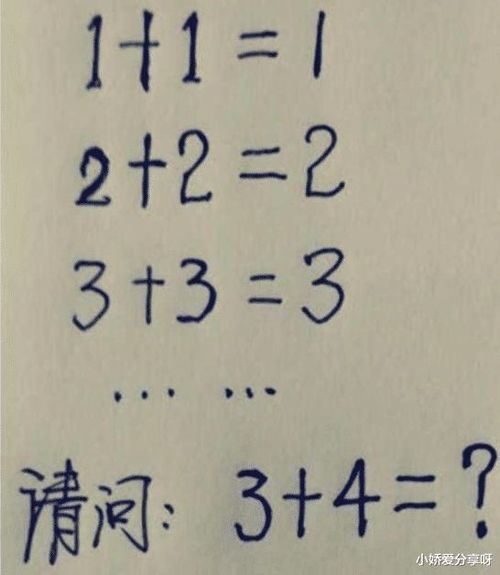 1+1=1
2+2=2
3+3=3
... ...
请问: 3+4=?
小娇爱分享呀